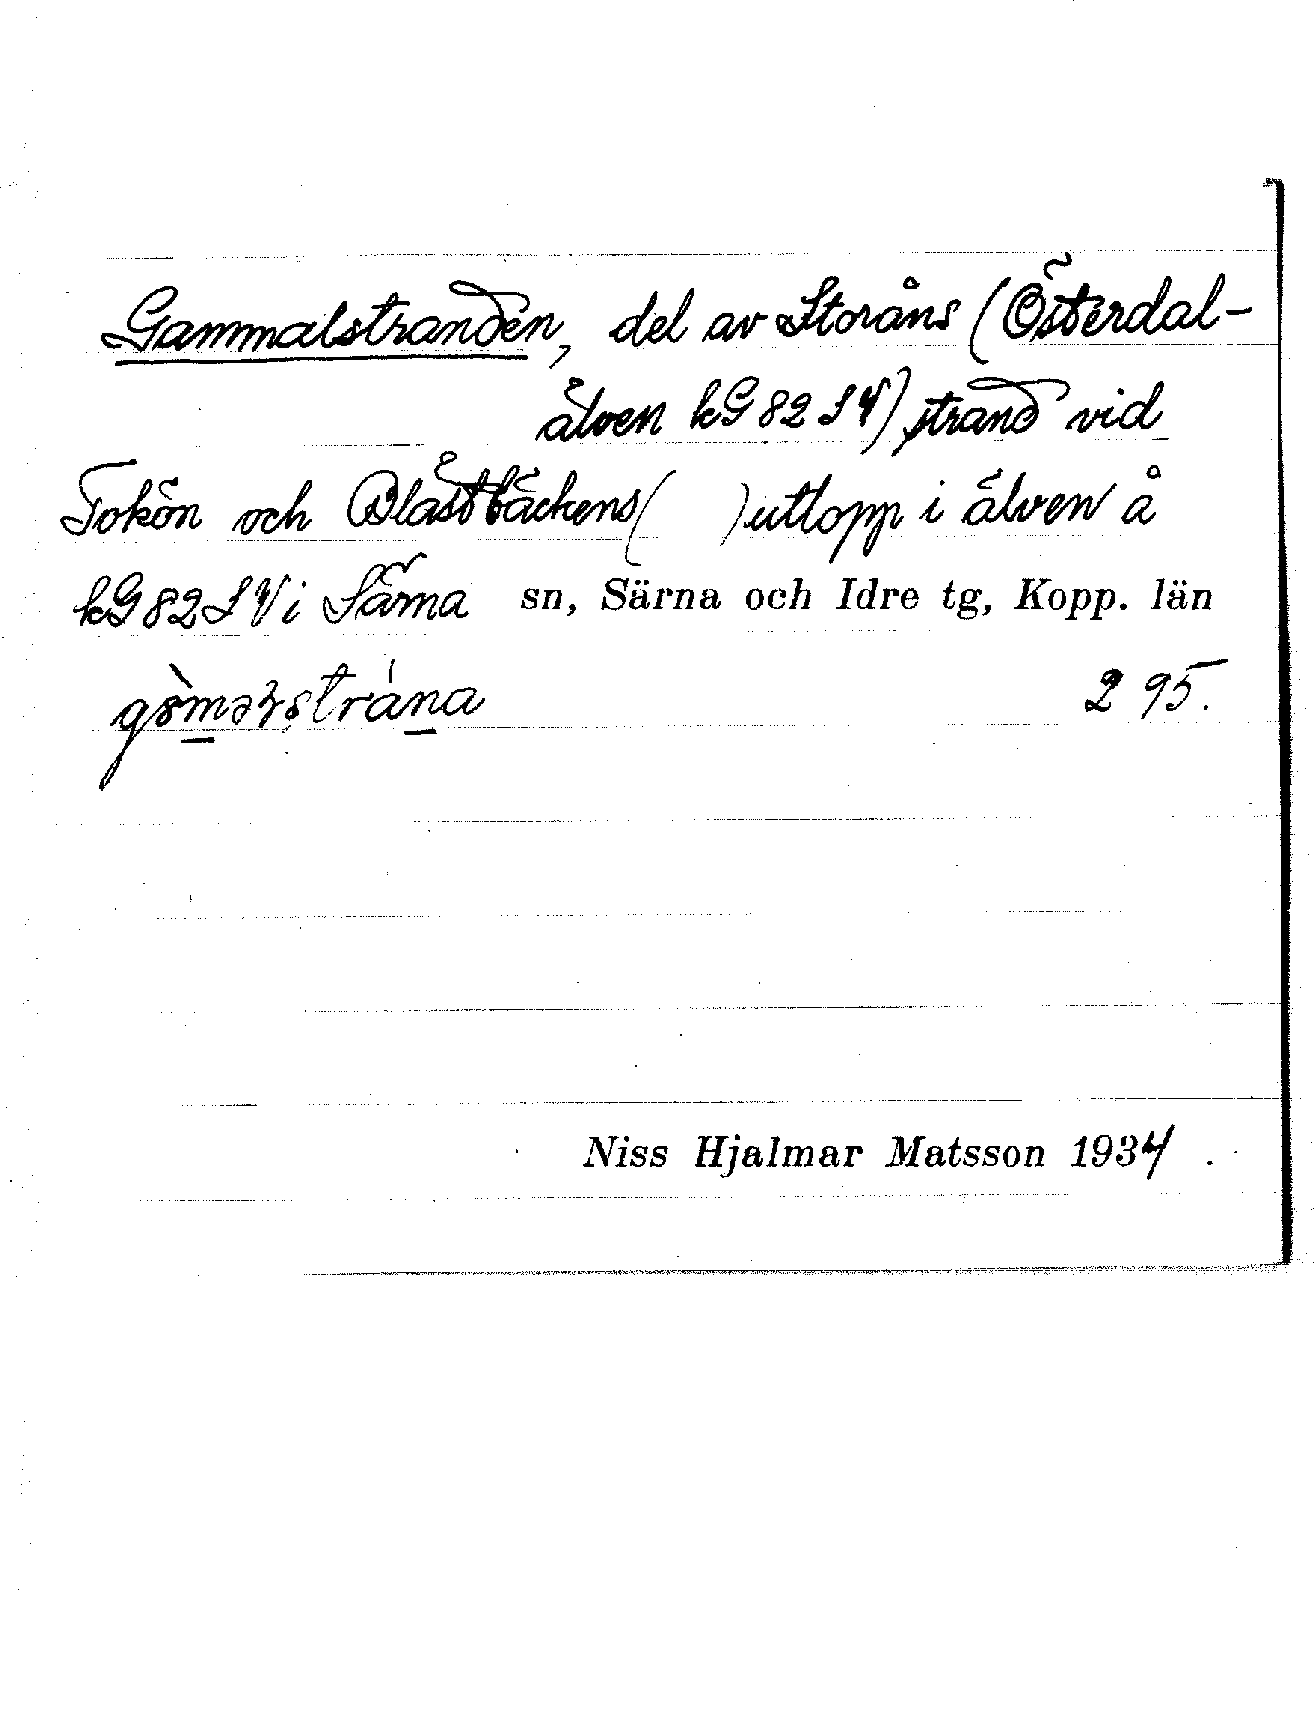 Gammalstranden, del av Storåns (Österdal-
älven kG 82 S V) strand vid
Tokön och Blåstbäckens ( ) utlopp i älven å
kG 82 S V i Särna sn, Särna och Idre tg, Kopp. län
295.
Niss Hjalmar Matsson 1934.